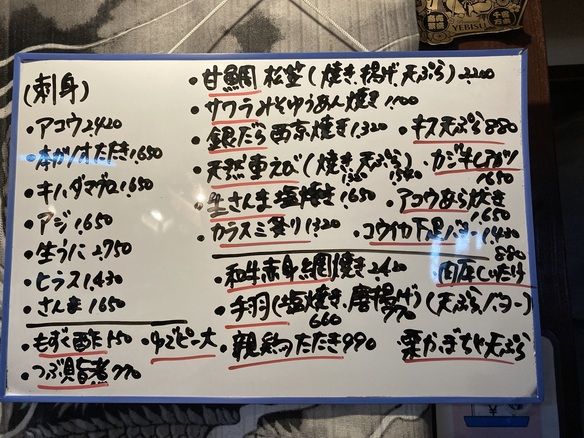 (刺身)
・アコウ2,420
・本ガツオたたき1,650
・キハダマグロ1,650
・アジ1,650
・生うに2,750
・ヒラス1,430
・さんま1,650
・もずく酢550
・ゆでピー大
・つぶ貝旨煮770
・甘鯛 松笠(焼き,揚げ,天ぷら)2,200
・サワラみそゆうあん焼き1,100
・銀だら西京焼き1,320
・キス天ぷら880
・天然車えび(焼き,天ぷら)
・カジキ
1,650
・生さんま塩焼き1,650
・アコウあら炊き
1,650
・カラスミ祭り1,320
・コウイカ下足バター1,420
880
・和牛赤身網焼き2,420
・肉厚しいたけ
・手羽(塩焼き、唐揚げ)
660 770
(天ぷら,バター)
・親鶏のたたき990
・栗かぼちゃ天ぷら
YEBISU